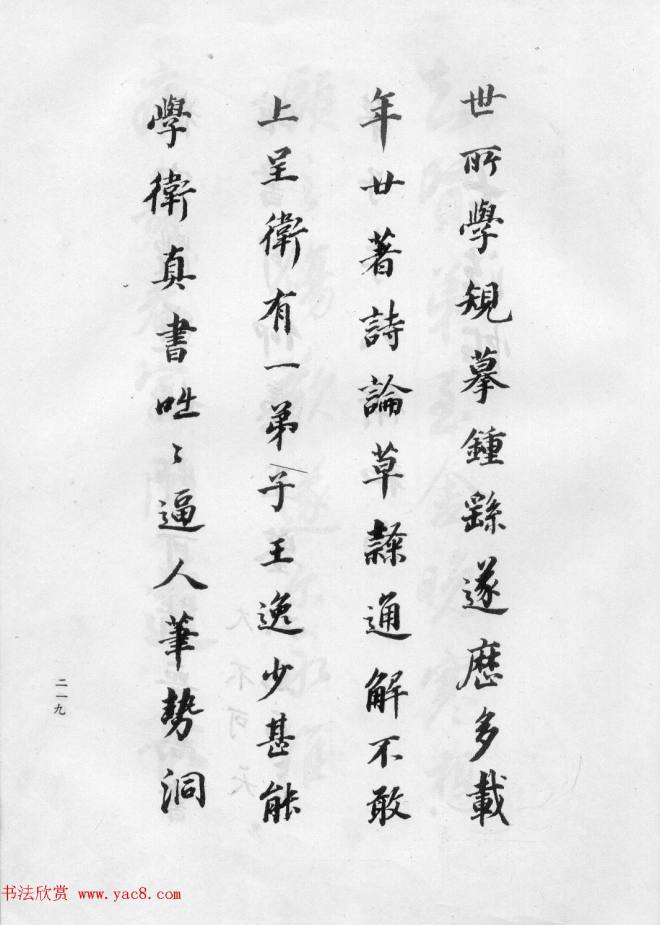 世所學規摹鍾繇遂歷多載
年廿著詩論草隸通解不敢
上呈衛有一弟子王逸少甚能
學衛真書咄〻逼人筆勢洞
二一九
书法欣赏 www.yac8.com